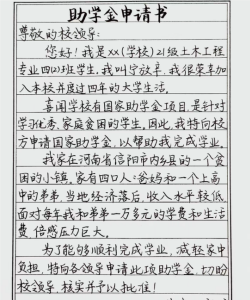 助学金申请书
尊敬的校领导:
您好!我是xx(学校)21级土木工程
专业四(2)班学生,我叫宁放弃,我很荣幸加
入本校并度过四年的大学生活。
喜闻学校有国家助学金项目,是针对
学习优秀,家庭贫困的学生,因此,我特向校
方申请国家助学金,以帮助我完成学业。
我家在河南省信阳市内乡县的一个贫
困的小镇,家有四口人:爸妈和一个上高
中的弟弟,当地经济落后,收入水平较低,
面对每年我和弟弟一万多元的学费和生活
费,倍感压力巨大。
为了能够顺利完成学业,减轻家中
负担,特向各领导申请此项助学金,切盼
校领导,核实并予以批准!